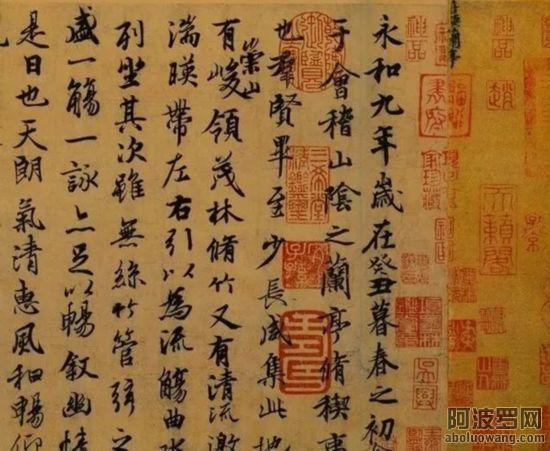 永和九年歲在癸丑暮春之初
于會稽山陰之蘭亭脩禊事
也羣賢畢至少長咸集此地
有崇山峻領茂林脩竹又有清流激
湍暎帶左右引以為流觴曲水
列坐其次雖無絲竹管弦之
盛一觴一詠亦足以暢敘幽情
是日也天朗氣清惠風和暢仰
神品
趙
天籟閣
阿波罗网
aboluowang.com